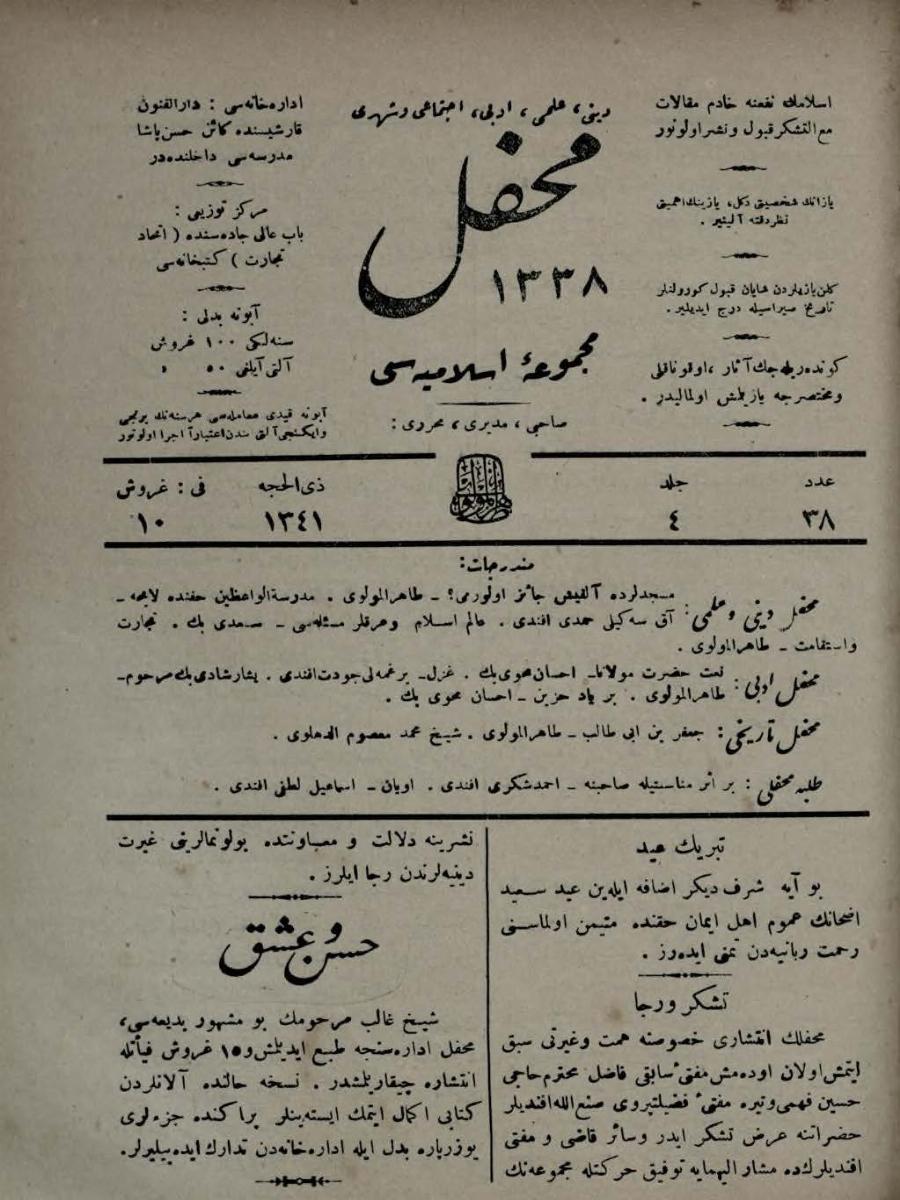 اسلامك نفعنه خادم مقالات
مع التشكر قبول و نشر اولونور
يازانك شخصيتى دكل، يازينك اهميتى
نظر دقته آلينير .
كلن يازيلردن شايان قبول كورولنلر
تاريخ صيراسيله درج ايديلير .
كوندهريله جك آثار ، اوقوناقلى
و مختصرجه يازيلمش اولماليدر .
دينى ، علمى ، ادبى ، اجتماعى و شهرى
محفل
١٣٣٨
مجموعۀ اسلاميه سى
صاحبى ، مديرى ، محررى :
اداره خانه سى : دار الفنون
قارشيسنده كائن حسن پاشا
مدرسه سى داخلنده در
مركز توزيعى :
باب عالى جاده سنده ( اتحاد
تجارت ) كتبخانه سى
آبونه بدلى :
سنه لكى ١٠٠ غروش
آلتى آيلغى ٥٠ »
آبونه قيدى معامله سى هر سنه نك برنجى
و ايكنجى آلتى سندن اعتباراً اجرا اولونور
عدد جلد ذى الحجه فى : غروش
٣٨ ٤ ١٣٤١ ١٠
مندرجات :
محفل دينى و علمى : مسجدلرده آلقيش جائز اولورمى؟ ـ طاهر المولوى . مدرسة الواعظين حقنده لايحه ـ
آق سه كيلى حمدى افندى . عالم اسلام و عرقلر مسئله سى ـ سعدى بك . تجارت
و استقامت ـ طاهر المولوى .
محفل ادبى : نعت حضرت مولانا ـ احسان محوى بك . غزل ـ برغمه لى جودت افندى . يشار شادى بك مرحوم ـ
طاهر المولوى . بر ياد حزين ـ احسان محوى بك .
محفل تاريخى : جعفر بن ابى طالب ـ طاهر المولوى . شيخ محمد معصوم الدهلوى .
طلبه محفلى : بر اثر مناسبتيله صاحبنه ـ احمد شكرى افندى . اويان ـ اسماعيل لطفى افندى .
تبريك عيد
بو آيه شرف ديكر اضافه ايله ين عيد سعيد
اضحانك عموم اهل ايمان حقنده متيمن اولماسنى
رحمت ربانيه دن تمنى ايده رز .
تشكر و رجا
محفلك انتشارى خصوصنه همت و غيرتى سبق
ايتمش اولان اوده مش مفتئ سابقى فاضل محترم حاجى
حسين فهمى و تيره مفتئ فضيلتپروى صنع الله افنديلر
حضراتنه عرض تشكر ايدر و سائر قاضى و مفتى
افنديلرك ده مشار اليهمايه توفيق حركتله مجموعه نك
نشرينه دلالت و معاونتده بولونمالرينى غيرت
دينيه لرندن رجا ايلرز .
حسن و عشق
شيخ غالب مرحومك بو مشهور بديعه سى ،
محفل اداره سنجه طبع ايديلمش و ١٥ غروش فيأتله
انتشاره چيقاريلمشدر . نسخه حالنده آلانلردن
كتابى اكمال ايتمك ايسته ينلر پراكنده جزءلرى
يوز پاره بدل ايله اداره خانه دن تدارك ايده بيليرلر .